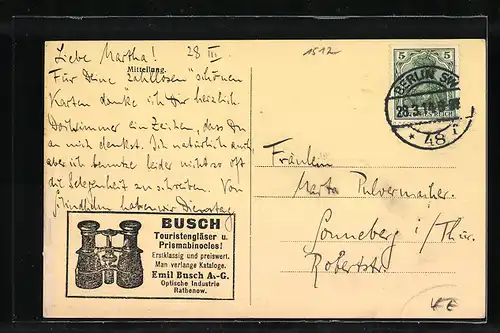 Liebe Martha! 28 III.
Mitteilung.
Für Deine "zahllosen" schönen
Karten danke ich Dir herzlich.
Doch immer ein Zeichen, dass Du
an mich denkst. Ich natürlich auch
aber ich benutze leider nicht so oft
die Gelegenheit zu schreiben. Von
haben wir Dienstag
BUSCH
Touristengläser u.
Prismabinocles!
Erstklassig und preiswert.
Man verlange Kataloge.
Emil Busch A.-G.
Optische Industrie
Rathenow.
5 5
BERLIN SW
28.3.
* 48
Fräulein
Marta Pulvermacher.
Sonneberg i/Thür.
Robertstr.